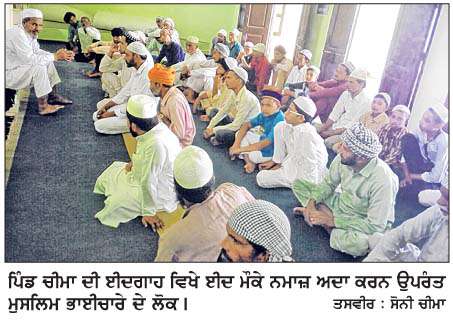 ਪਿੰਡ ਚੀਮਾ ਦੀ ਈਦਗਾਹ ਵਿਖੇ ਈਦ ਮੌਕੇ ਨਮਾਜ਼ ਅਦਾ ਕਰਨ ਉਪਰੰਤ
ਮੁਸਲਿਮ ਭਾਈਚਾਰੇ ਦੇ ਲੋਕ। ਤਸਵੀਰ : ਸੋਨੀ ਚੀਮਾ